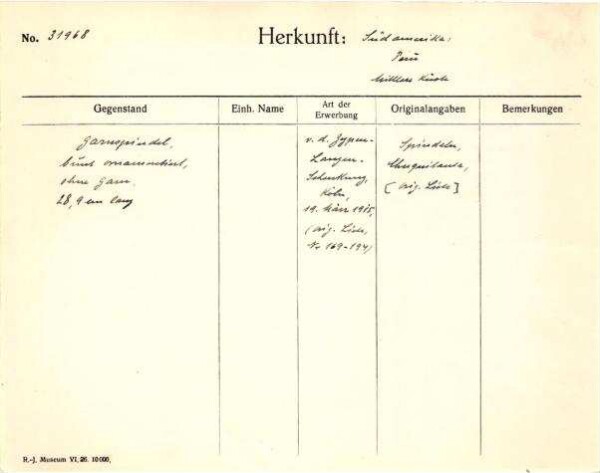 No. 31968
Herkunft:
Südamerika:
Peru
Mittlere Küste
Gegenstand
Einh. Name
Art der Erwerbung
Originalangaben
Bemerkungen
Garnspindel,
bunt ornamentiert,
ohne Garn.
28,9 cm lang
v. d. Zypen-
Langen-
Schenkung,
Köln,
19. März 1915,
(orig. Liste,
Nr 169-194)
Spindeln,
[orig. Liste]
R.-J. Museum VI. 26. 10000.